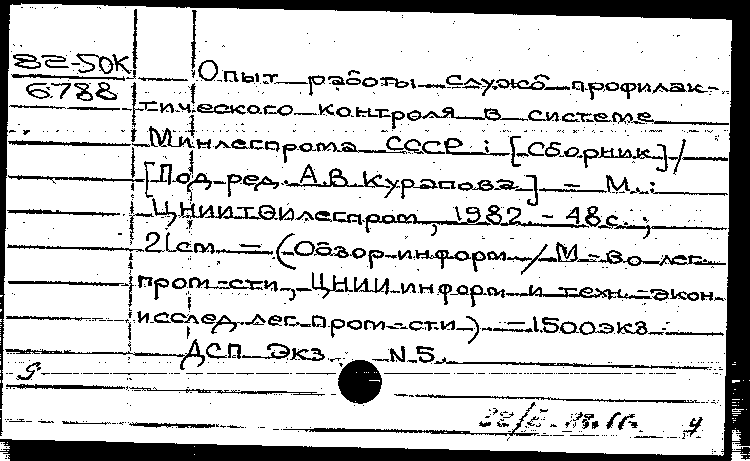 82-50К
6788
Опыт работы служб профилак-
тического контроля в системе
Минлегпрома СССР : [Сборник] /
[Под ред. А.В. Курапова] - М. :
ЦНИИТЭИлегпром, 1982. - 48с. ;
21см - (Обзор. информ. / М-во лег.
пром-сти, ЦНИИ информ. и техн.-экон.
исслед. лег. пром-сти) - 1500экз.
ДСП Экз. N 5.